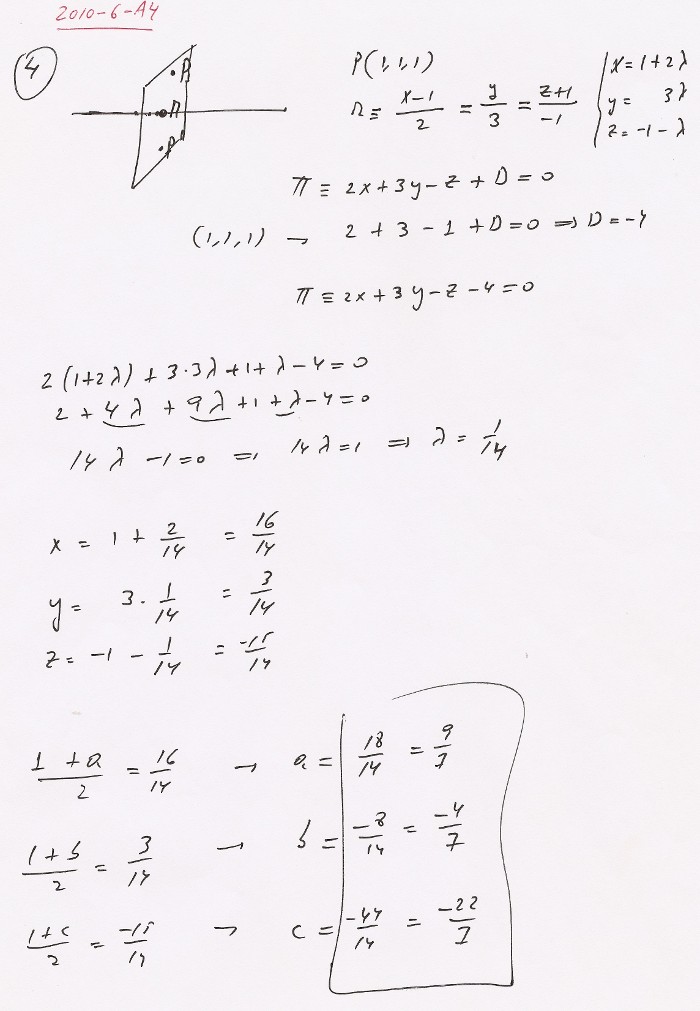 2010-6-A4
4
P(1,1,1)
r ≡ x-1/2 = y/3 = z+1/-1
x = 1+2λ
y = 3λ
z = -1-λ
π ≡ 2x+3y-z+D=0
(1,1,1) → 2+3-1+D=0 ⇒ D=-4
π ≡ 2x+3y-z-4=0
2(1+2λ)+3·3λ+1+λ-4=0
2+4λ+9λ+1+λ-4=0
14λ-1=0 ⇒ 14λ=1 ⇒ λ=1/14
x = 1+2/14 = 16/14
y = 3·1/14 = 3/14
z = -1-1/14 = -15/14
1+a/2 = 16/14 → a = 18/14 = 9/7
1+b/2 = 3/14 → b = -8/14 = -4/7
1+c/2 = -15/14 → c = -44/14 = -22/7